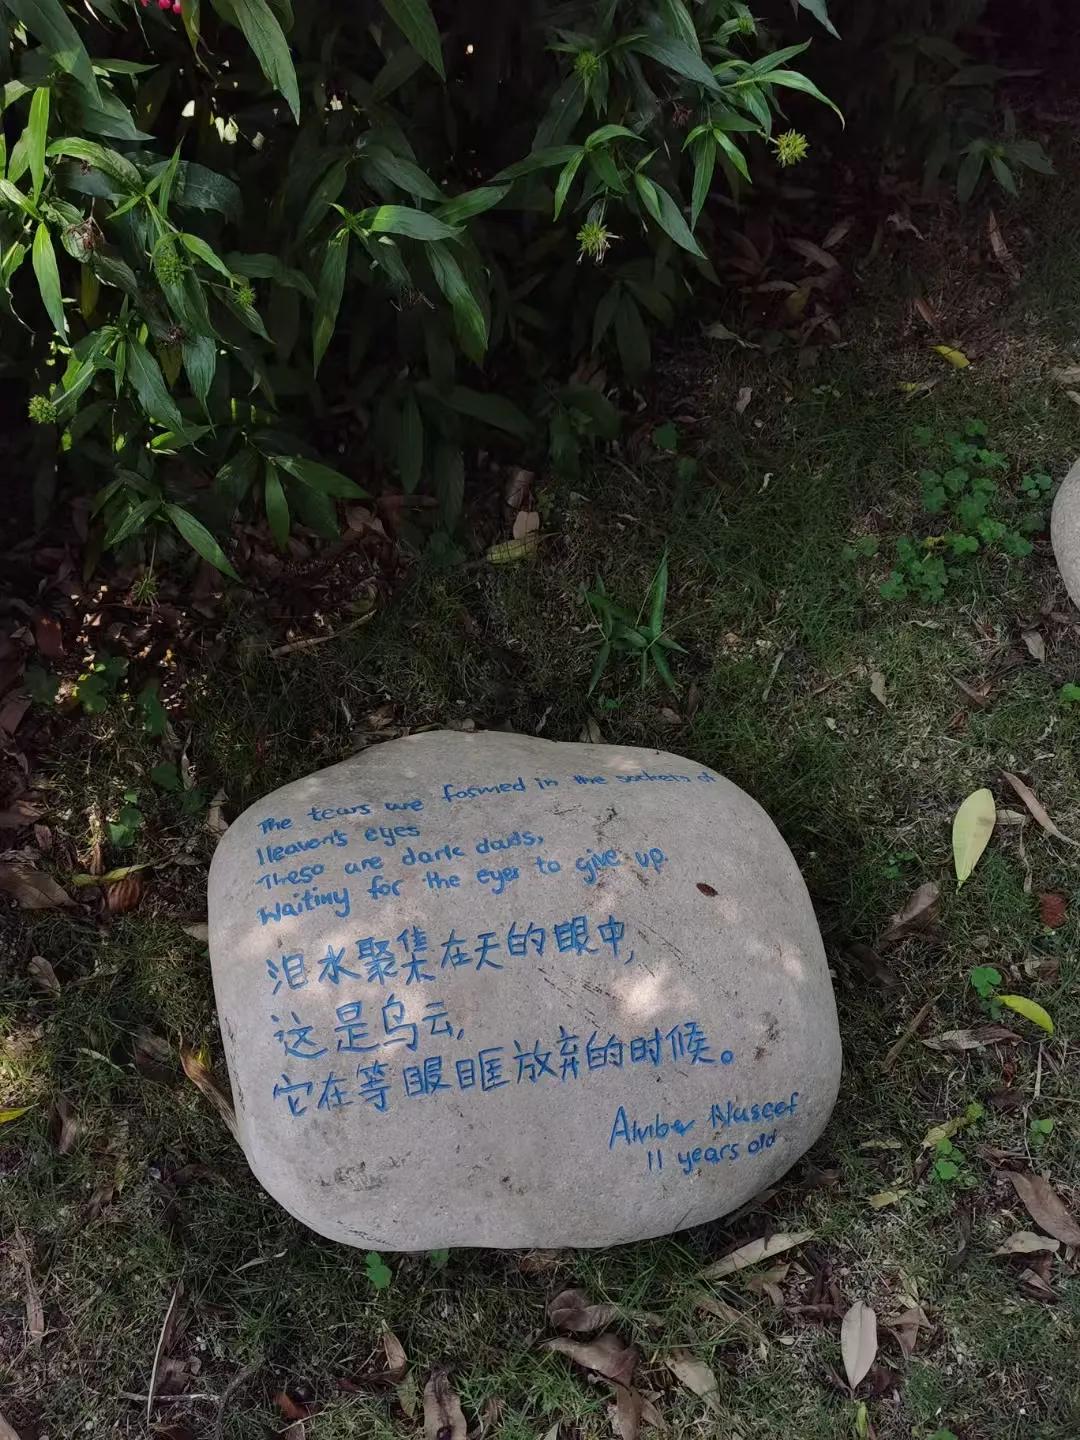 The tears are formed in the sockets of
Heaven's eyes
These are dark clouds,
Waiting for the eyes to give up.
泪水聚集在天的眼中,
这是乌云,
它在等眼眶放弃的时候。
Amber Nuseef
11 years old